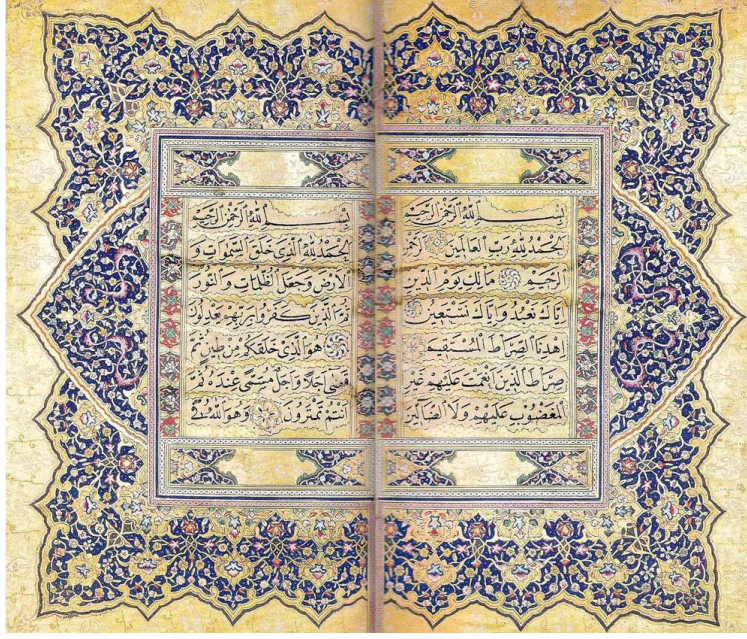 بسم الله الرحمن الرحيم
الحمد لله رب العالمين الرحمن
الرحيم مالك يوم الدين
إياك نعبد وإياك نستعين
اهدنا الصراط المستقيم
صراط الذين أنعمت عليهم غير
المغضوب عليهم ولا الضالين
بسم الله الرحمن الرحيم
الحمد لله الذي خلق السموات و
الأرض وجعل الظلمات والنور
ثم الذين كفروا بربهم يعدلون
هو الذي خلقكم من طين ثم
قضى أجلا وأجل مسمى عنده ثم
أنتم تمترون وهو الله في